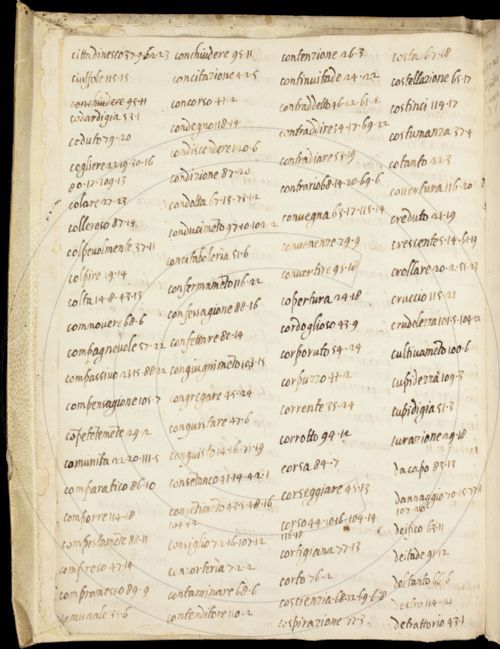 cittadinesco 37·9·62·23
ciuffole 115·13
conchiudere 95·11
codardigia 53·1
ceduto 79·20
cogliere 22·19·30·16
80·17·109·13
colare 27·23
colleroso 87·14
colpevolmente 37·11
colpire 19·14
colta 14·8·43·13
commovere 68·6
combagnevole 57·22
compassivo 23·15·88·22
compensagione 105·7
comunita 12·20·111·5
comparatico 86·10
comporre 114·18
compostamente 88·11
compreso 47·14
compromesso 89·9
comunale 3·6
conchiudere 95·11
concitazione 42·5
concorso 41·2
condegno 118·14
condiscendere 120·6
condizione 87·20
condotta 67·13·75·12
conducimento 97·10·102·2
confermamento 116·22
confessagione 88·16
confettare 80·14
congregare 45·24
conquistare 47·6
conquisto 14·16·71·19
consiglio 72·16·107·12
consorteria 72·2
contaminare 68·6
contenditore 110·2
contenzione 26·3
continuitade 24·22
contraddetto 16·22·61·2
contraddire 54·17·69·22
contradiare 55·19
contrario 68·14·20·69·6
convegna 65·17·115·14
convenenze 79·9
convertire 95·18
copertura 24·18
cordoglioso 43·9
corporuto 54·24
corpuzzo 44·2
corrente 35·24
corrotto 94·12
corsa 84·7
corseggiare 45·13
corso 44·10·16·104·14
116·18
cortigiana 77·13
corto 76·2
coscienzia 68·22·69·6·8
cospirazione 77·3
costa 67·18
costellazione 65·17
costinci 114·17
costumanza 37·4
cotanto 22·3
covertura 116·20
creduto 21·19
crescente 5·14·61·19
crollare 20·2·25·23
cruccio 115·21
crudelezza 101·5·104·22
cultivamento 100·6
cupidezza 109·3
cupidigia 51·3
curazione 29·18
da capo 83·13
dannaggio 70·15·77·4
107·20
deifico 63·11
deitade 91·12
del tanto 66·6
destro 114·21
detrattorio 43·1